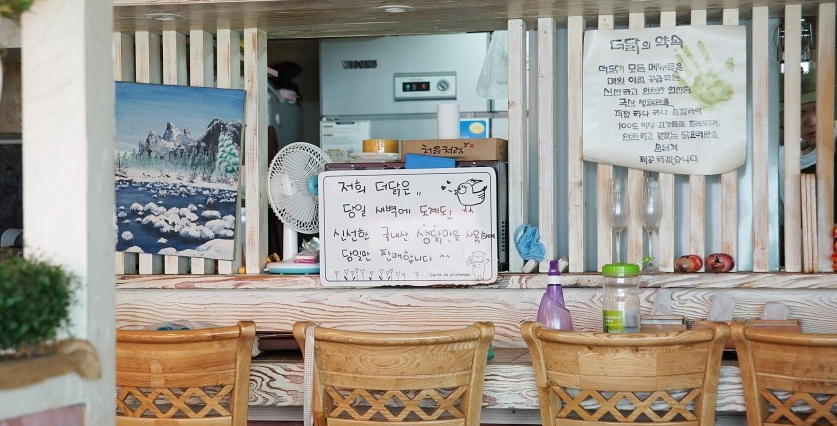 WOOSUNG
처음처럼
저희 더닭은,,
당일 새벽에 도계된 ^^
신선한 국내산 생닭만을 사용하여
당일만 판매합니다 ^^
Conte de printemps
더닭의 약속
더닭의 모든 메뉴들은
매일 아침 공급되는
신선하고 안전한
국산 생닭만을
직접 하나 하나 손질하여
100도 이상 고온으로
안전하고 맛있는 닭요리만을
손님께
제공 하겠습니다.